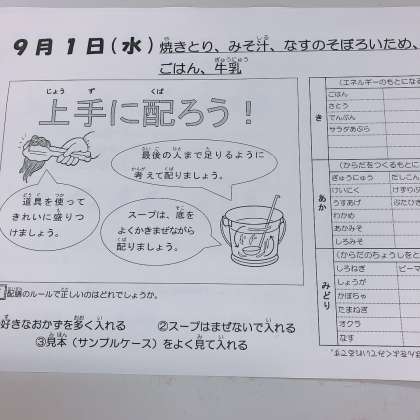 ９月１日（水）焼きとり、みそ汁、なすのそぼろいため、
ごはん、牛乳
上手に配ろう！
最後の人まで足りるように
考えて配りましょう。
道具を使って
きれいに盛りつ
けましょう。
スープは、底を
よくかきまぜながら
配りましょう。
配膳のルールで正しいのはどれでしょうか。
好きなおかずを多く入れる　②スープはまぜないで入れる
③見本（サンプルケース）をよく見て入れる
き
（エネルギーのもとになる
ごはん
さとう
でんぷん
サラダあぶら
あか
（からだをつくるもとに
ぎゅうにゅう　だしこん
けいにく　けずりぶ
うすあげ　ぶたひき
わかめ
あかみそ
しろみそ
みどり
（からだのちょうしをと
しろねぎ　ピーマ
しょうが
かぼちゃ
たまねぎ
オクラ
なす